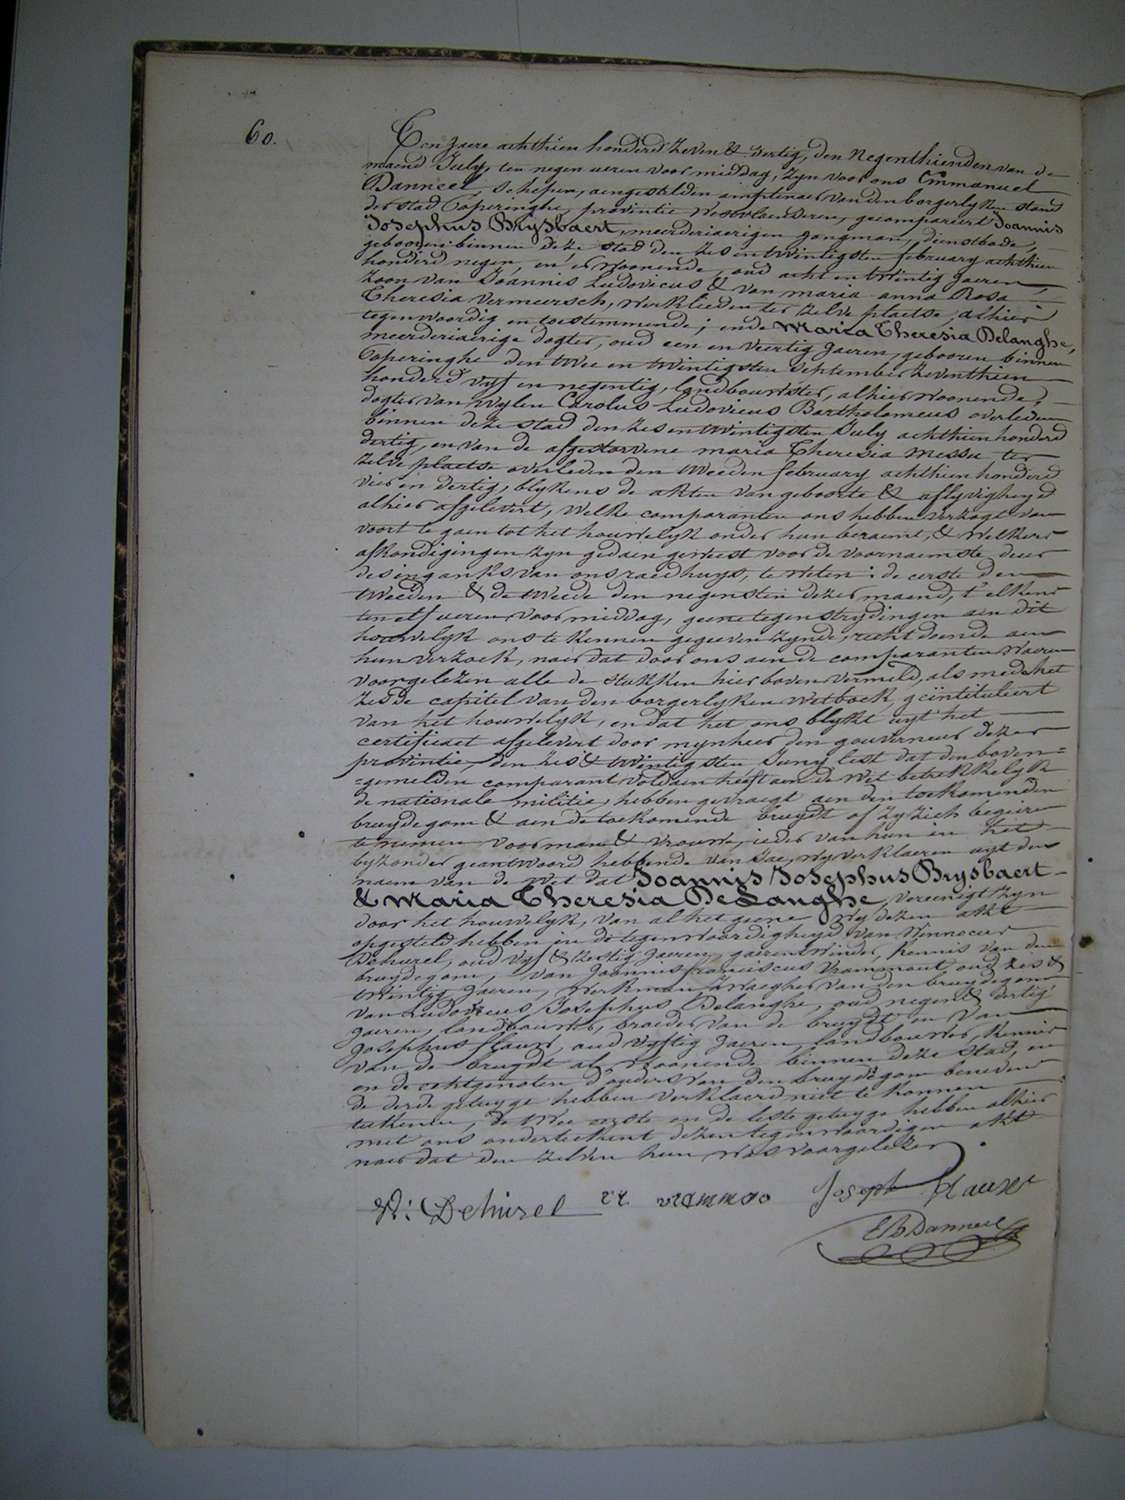 60.
Ten jaere achthien honderd zeven & dertig, den negenthienden van de
maend July, ten negen ueren voormiddag, zyn voor ons Emmanuel
Banneel, schepen, aengestelden amptenaer van den borgerlyken stand
der stad Poperinghe, provintie Westvlaenderen, gecompareert Joannis
Josephus Brysbaert, meerderjaerigen jongman, dienstbode,
gebooren binnen deze stad den zes en twintigsten february achthien
honderd negen, en er woonende, oud acht en twintig jaeren,
zoon van Joannis Ludovicus & van maria anna Rosa
Theresia Vermeersch, werklieden ter zelve plaetse, alhier
tegenwoordig en toestemmende; ende Maria Theresia Delanghe,
meerderjaerige dogter, oud een en veertig jaeren, gebooren binnen
Poperinghe den twee en twintigsten september zeventhien
honderd vyf en negentig, landbouwster, alhier woonende,
dogter van wylen Carolus Ludovicus Bartholomeus overleden
binnen deze stad den zes en twintigsten July achthien honderd
dertig, en van de afgestorvene maria Theresia Messu ter
zelve plaetse overleden den tweeden february achthien honderd
vier en dertig, blykens de akten van geboorte & aflyvigheyd
alhier afgelevert, welke comparanten ons hebben verzogt van
voort te gaen tot het houwelyk onder hun beraemt, & welkers
afkondigingen zyn gedaen geweest voor de voornaemste deur
des ingankx van ons raedhuys, te weten: de eerste den
tweeden & de tweede den negensten dezer maend, t'elkens
ten elf ueren voormiddag, geene tegenstrydingen aen dit
houwelyk ons te kennen gegeeven zynde, recht doende aen
hun verzoek, naer dat door ons aen de comparanten waeren
voorgelezen alle de stukken hier boven vermeld, als mede het
zesde capitel van den borgerlyken wetboek, geïntituleert
van het houwelyk, en dat het ons blykt uyt het
certificaet afgelevert door mynheer den gouverneur dezer
provintie, den zes & twintigsten Juny lest dat den boven=
=gemelden comparant voldaen heeft aen de wet betrekkelyk
de nationale militie, hebben gevraegt aen den toekomenden
bruydegom & aen de toekomende bruydt of zy zich begeeren
te nemen voor man & vrouw, ieder van hun in het
byzonder geantwoord hebbende van Jae, wy verklaeren uyt den
naeme van de wet dat Joannis Josephus Brysbaert
& Maria Theresia Delanghe, vereenigt zyn
door het houwelyk, van al het geene wy dezen akt
opgesteld hebben in de tegenwoordigheyd van Winnocus
Dehurel, oud vyf & zestig jaeren, gaerenwinder, kennis van den
bruydegom, van Joannis franciscus Vrammout, oud zes &
twintig jaeren, werkman, zwaegher van den bruydegom
van Ludovicus Josephus Delanghe, oud negen & dertig
jaeren, landbouwer, broeder van de bruydt en van
Josephus flauw, oud vyftig jaeren, landbouwer, kennis
van de bruydt al woonende binnen deze stad, en
en de echtgenoten d'ouders van den bruydegom beneven
de derde getuyge hebben verklaerd niet te konnen
teekenen, de twee eerste en de leste getuyge hebben alhier
met ons onderteekent dezen tegenwoordigen akt
naer dat den zelven hun was voorgelezen
W: Dehurel Joseph flauw
EB Banneel